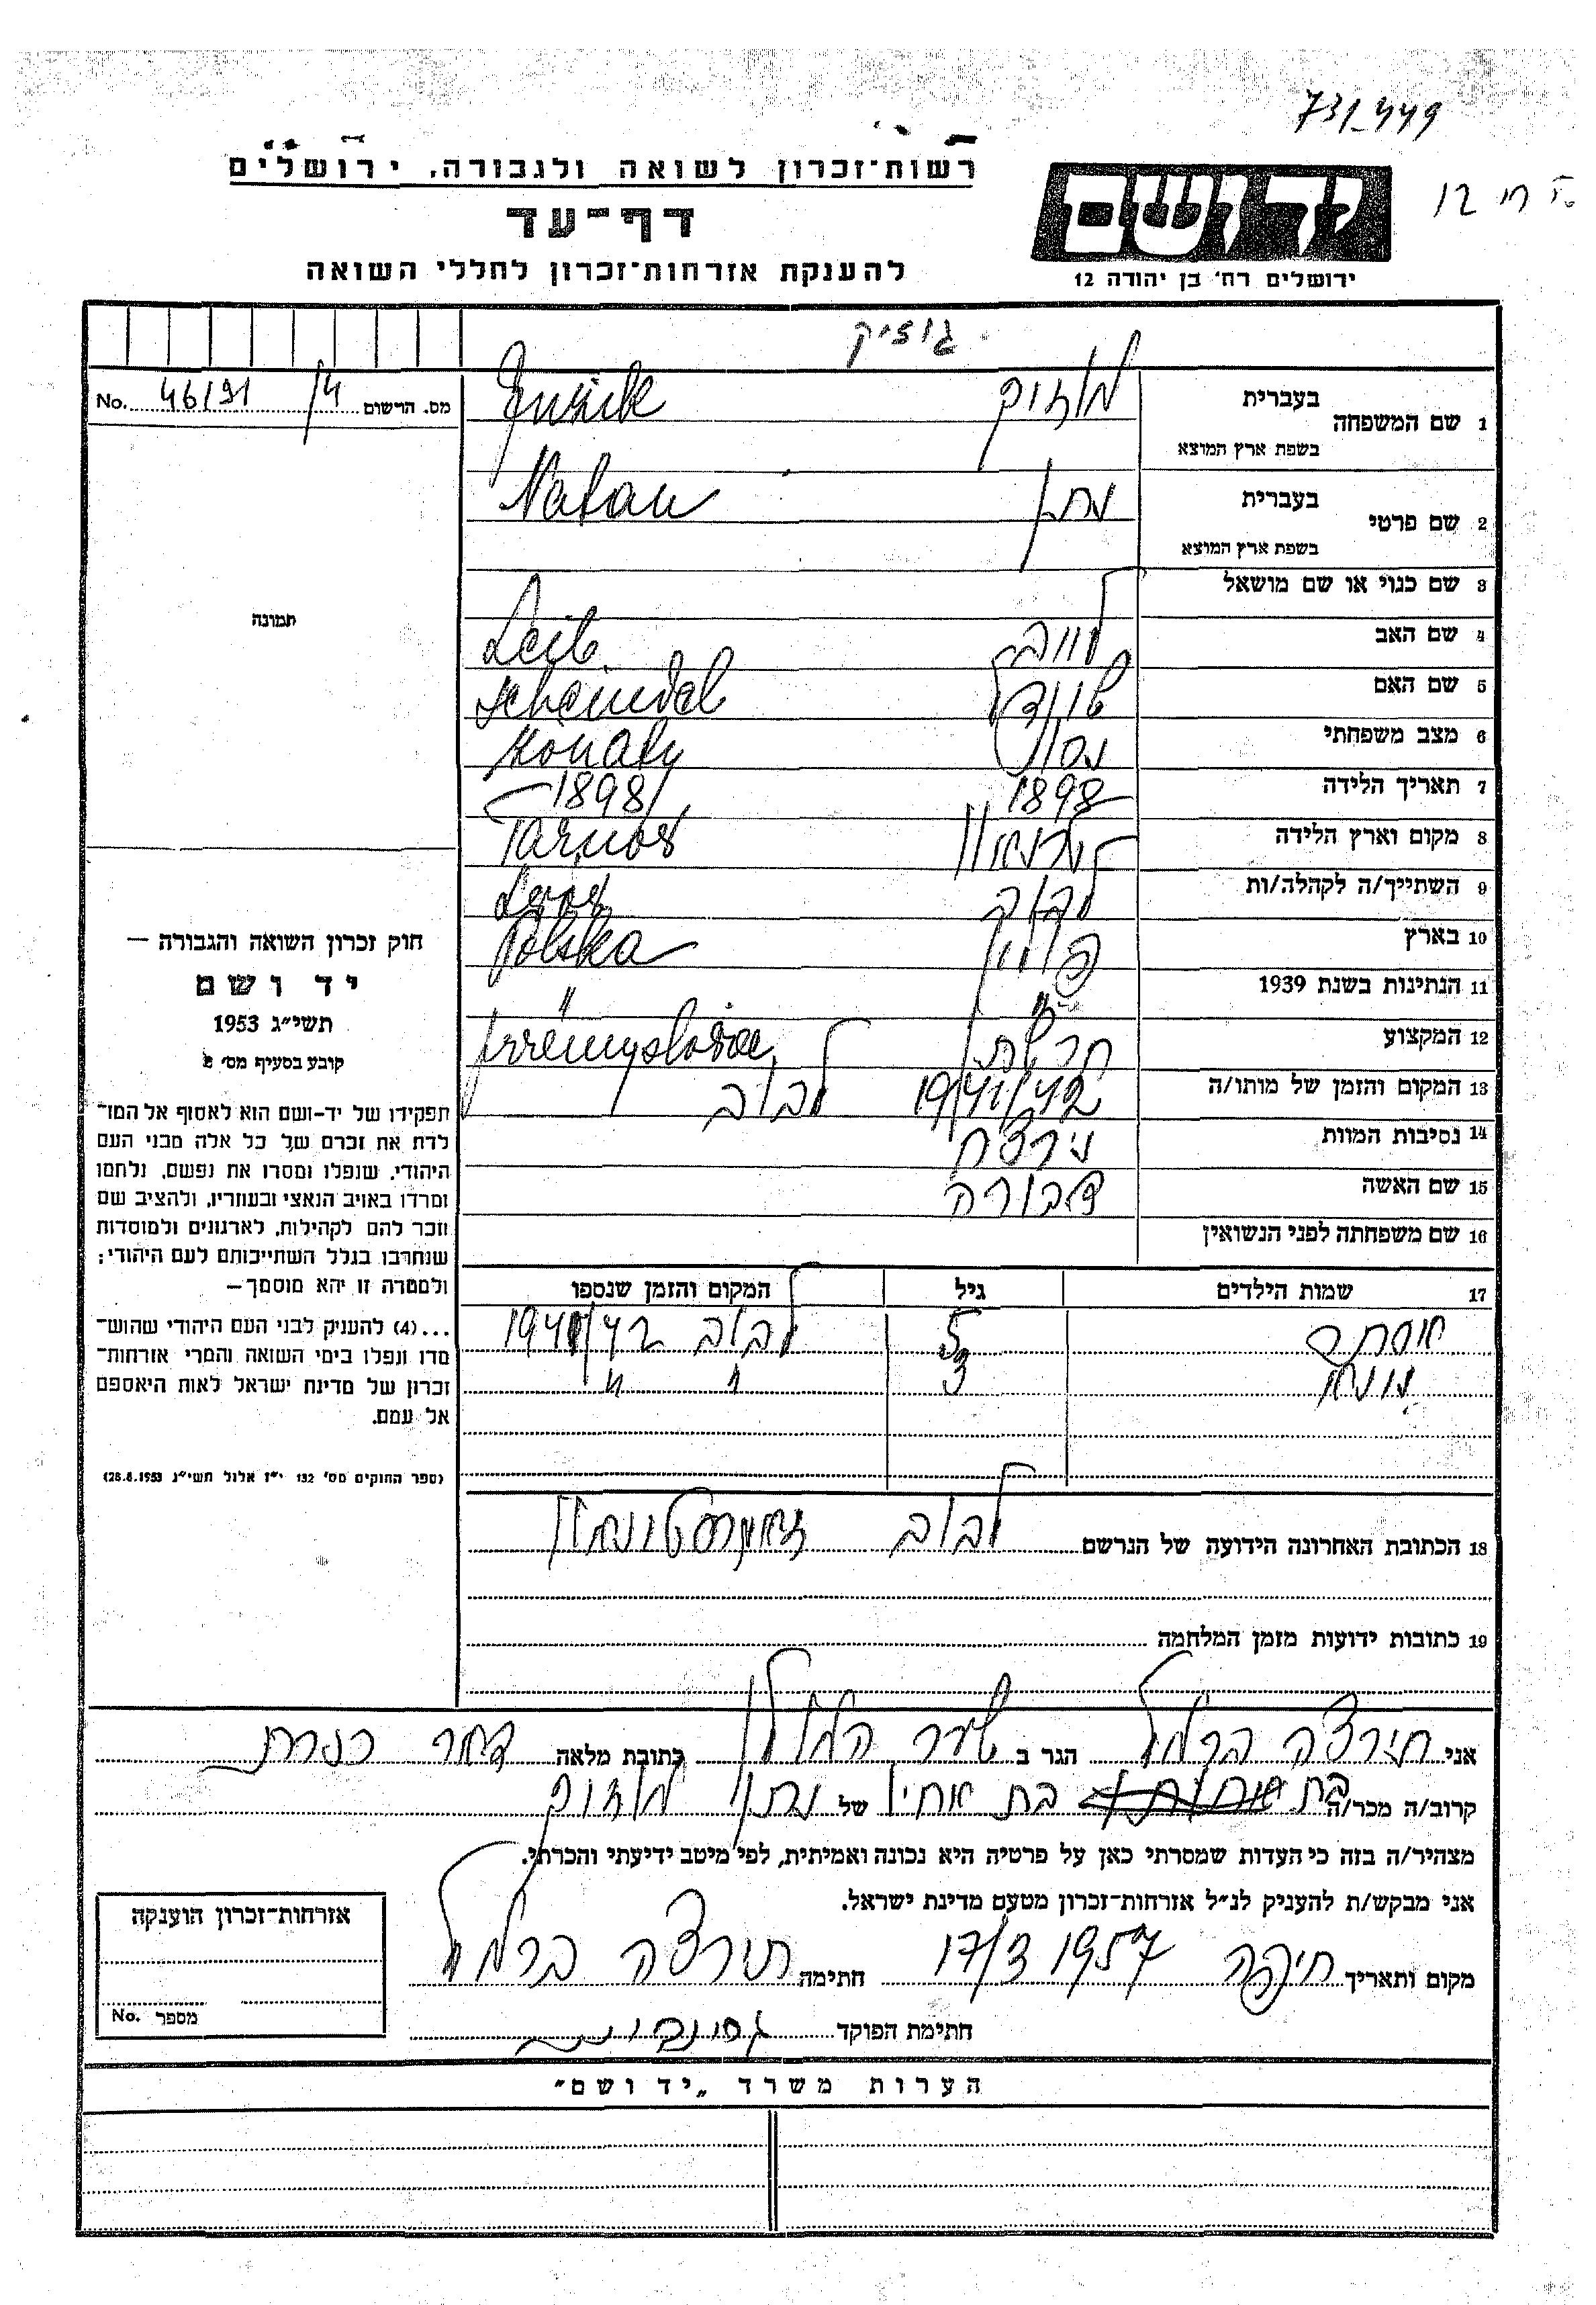 731/449
רשות־זכרון לשואה ולגבורה, ירושלים
יד ושם
דף־עד
להענקת אזרחות־זכרון לחללי השואה
ירושלים רח' בן יהודה 12
גוזיק
מס. הרשום 14 46/91 No.
1 שם המשפחה בעברית גוזיק Guzik
בשפת ארץ המוצא
2 שם פרטי בעברית נתן Natan
בשפת ארץ המוצא
3 שם כנוי או שם מושאל
תמונה
4 שם האב לייב Leib
5 שם האם שיינדל Scheindel
6 מצב משפחתי נשוי żonaty
7 תאריך הלידה 1898 1898
8 מקום וארץ הלידה טרנאוו Tarnów
9 השתייך/ה לקהלה/ות לבוב Lwów
10 בארץ פולין Polska
11 הנתינות בשנת 1939 " "
12 המקצוע חרשת przemysłowiec
13 המקום והזמן של מותו/ה 1941/42 לבוב
14 נסיבות המוות נירצח
15 שם האשה דבורה
16 שם משפחתה לפני הנשואין
17 שמות הילדים גיל המקום והזמן שנספו
אסתר 5 לבוב 1941/42
3 " "
18 הכתובת האחרונה הידועה של הנרשם לבוב
19 כתובות ידועות מזמן המלחמה
חוק זכרון השואה והגבורה —
יד ושם
תשי"ג 1953
קובע בסעיף מס' 2
תפקידו של יד-ושם הוא לאסוף אל המו־
לדת את זכרם של כל אלה מבני העם
היהודי, שנפלו ומסרו את נפשם, נלחמו
ומרדו באויב הנאצי ובעוזריו, ולהציב שם
וזכר להם לקהילות, לארגונים ולמוסדות
שנחרבו בגלל השתייכותם לעם היהודי;
ולמטרה זו יהא מוסמך —
...(4) להעניק לבני העם היהודי שהוש־
מדו ונפלו בימי השואה והמרי אזרחות־
זכרון של מדינת ישראל לאות היאספם
אל עמם.
(ספר החוקים מס' 132 י"ז אלול תשי"ג 28.8.1953)
אני תירצה ברמל הגר ב שער העמקים כתובת מלאה דאר
קרוב/ה מכר/ה בת בת אחיו של נתן גוזיק
מצהיר/ה בזה כי העדות שמסרתי כאן על פרטיה היא נכונה ואמיתית, לפי מיטב ידיעתי והכרתי.
אני מבקש/ת להעניק לנ"ל אזרחות־זכרון מטעם מדינת ישראל.
מקום ותאריך חיפה 17/3 1957 חתימה תירצה ברמל
חתימת הפוקד
אזרחות־זכרון הוענקה
מספר No.
הערות משרד „יד ושם"